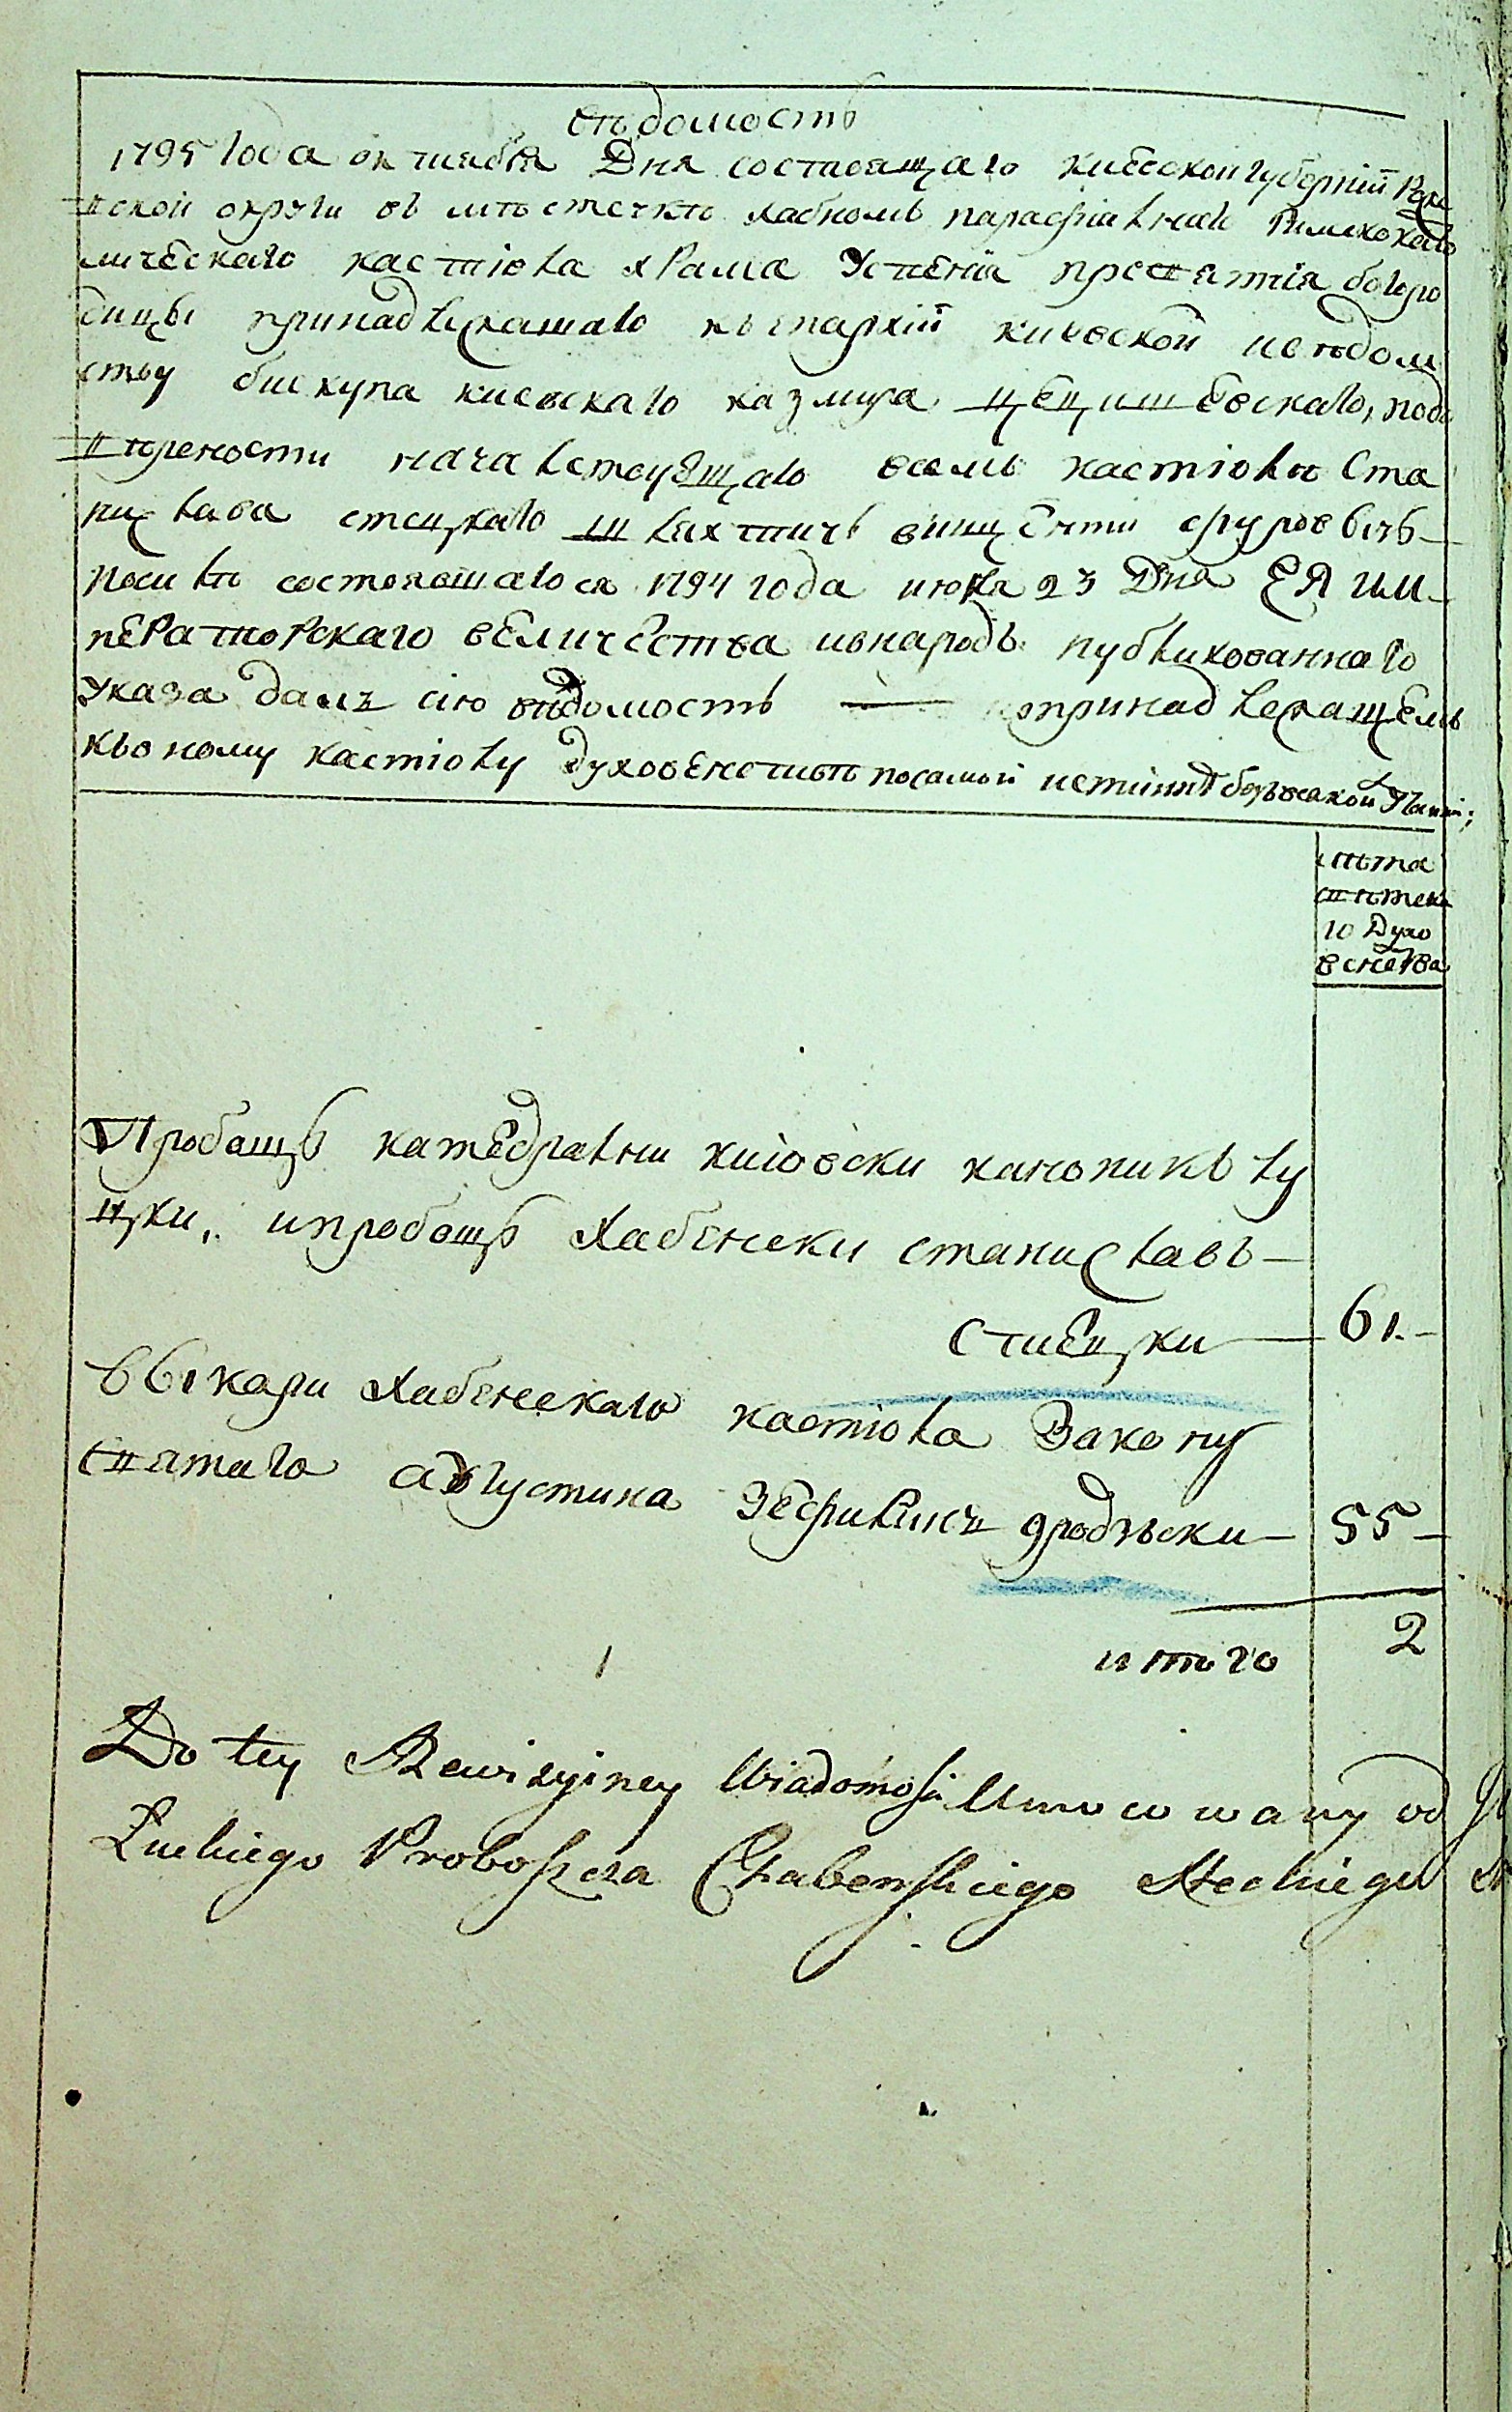 вѣдомость
1795 года октября Дня состоящаго киевской губернiи Рад
ской округи въ мѣстечкѣ хабномъ парафiални Римскокато
лическаго костiола храма Успенiя пресвятiя богоро
дицы принадлежашаго къ епархiи киевской и вѣдом
ству бискупа киевскаго казмира цецишевскаго, подо
начальствующаго всемъ костiолѣ Ста
нислава стецкаго шляхтичъ винцентi
посилѣ состоявшагося 1794 года июня 23 Дня ЕЯ им
ператорскаго величества и внародъ публикованнаго
указа далъ сiю вѣдомость принадлежащемъ
къ оному костiолу духовенствѣ посамой истиннѣ безъ всякой
лѣта
свѣтска
го Духо
венства
Пробощъ катедрални киiовски каноникъ лу
цки, и пробощъ хабенски станиславъ
Стиецки 61.
выкари хабенскаго костiола Закону
святаго августина Зефиринъ 55
итого 2
Do tey Rewizyiney Wiadomości Umocowany od
Łuckiego Proboszcza Chabenskiego Steckiego